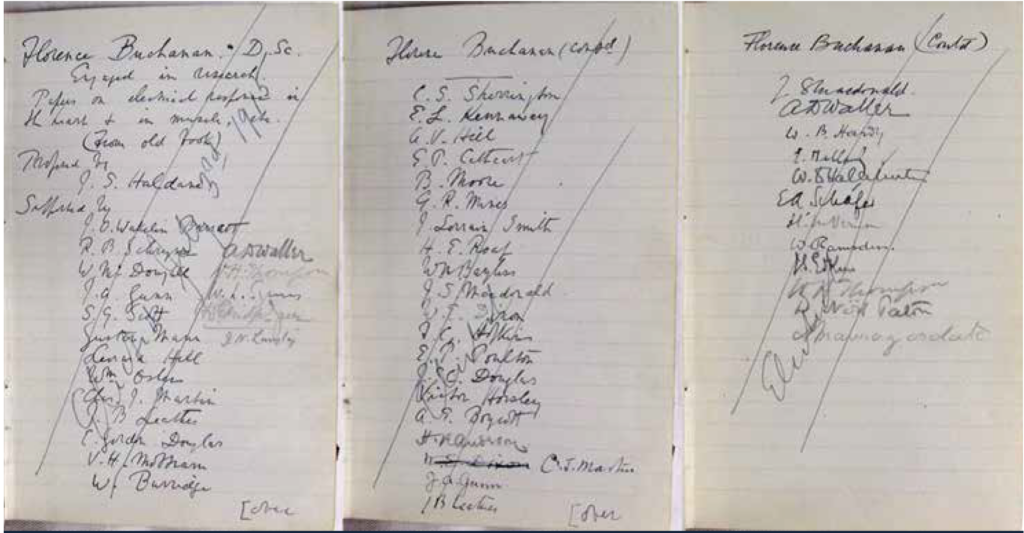 Florence Buchanan. D.Sc.
Engaged in research.
Papers on electrical response in
the heart & in muscle, etc.
(From old book)
Proposed by
J. S. Haldane
Supported by
R. B.
W. McDougall
J. A. Gunn
S. G. Scott
Gustav Mann
Leonard Hill
Wm Osler
Chas J. Martin
J. B Leathes
C. Gordon Douglas
V. H. Mottram
W. Burridge
A D Waller
W. H. Thompson
[over
Florence Buchanan (contd)
C. S. Sherrington
E. L. Kennaway
A. V. Hill
E. P. Cathcart
B. Moore
G. R. Mines
J. Lorrain Smith
H. E. Roaf
W M Bayliss
J S Macdonald
W. E. Dixon
E. P. Poulton
C. G. Douglas
Victor Horsley
A. E. Boycott
H K Anderson
W. E. Dixon C. J. Martin
J A Gunn
J B Leathes
[over
Florence Buchanan (Contd)
J S Macdonald.
A D Waller
W. B. Hardy
W. D Halliburton
E A Schafer
H. M Vernon
W Ramsden.
W H Thompson
D. Noël Paton